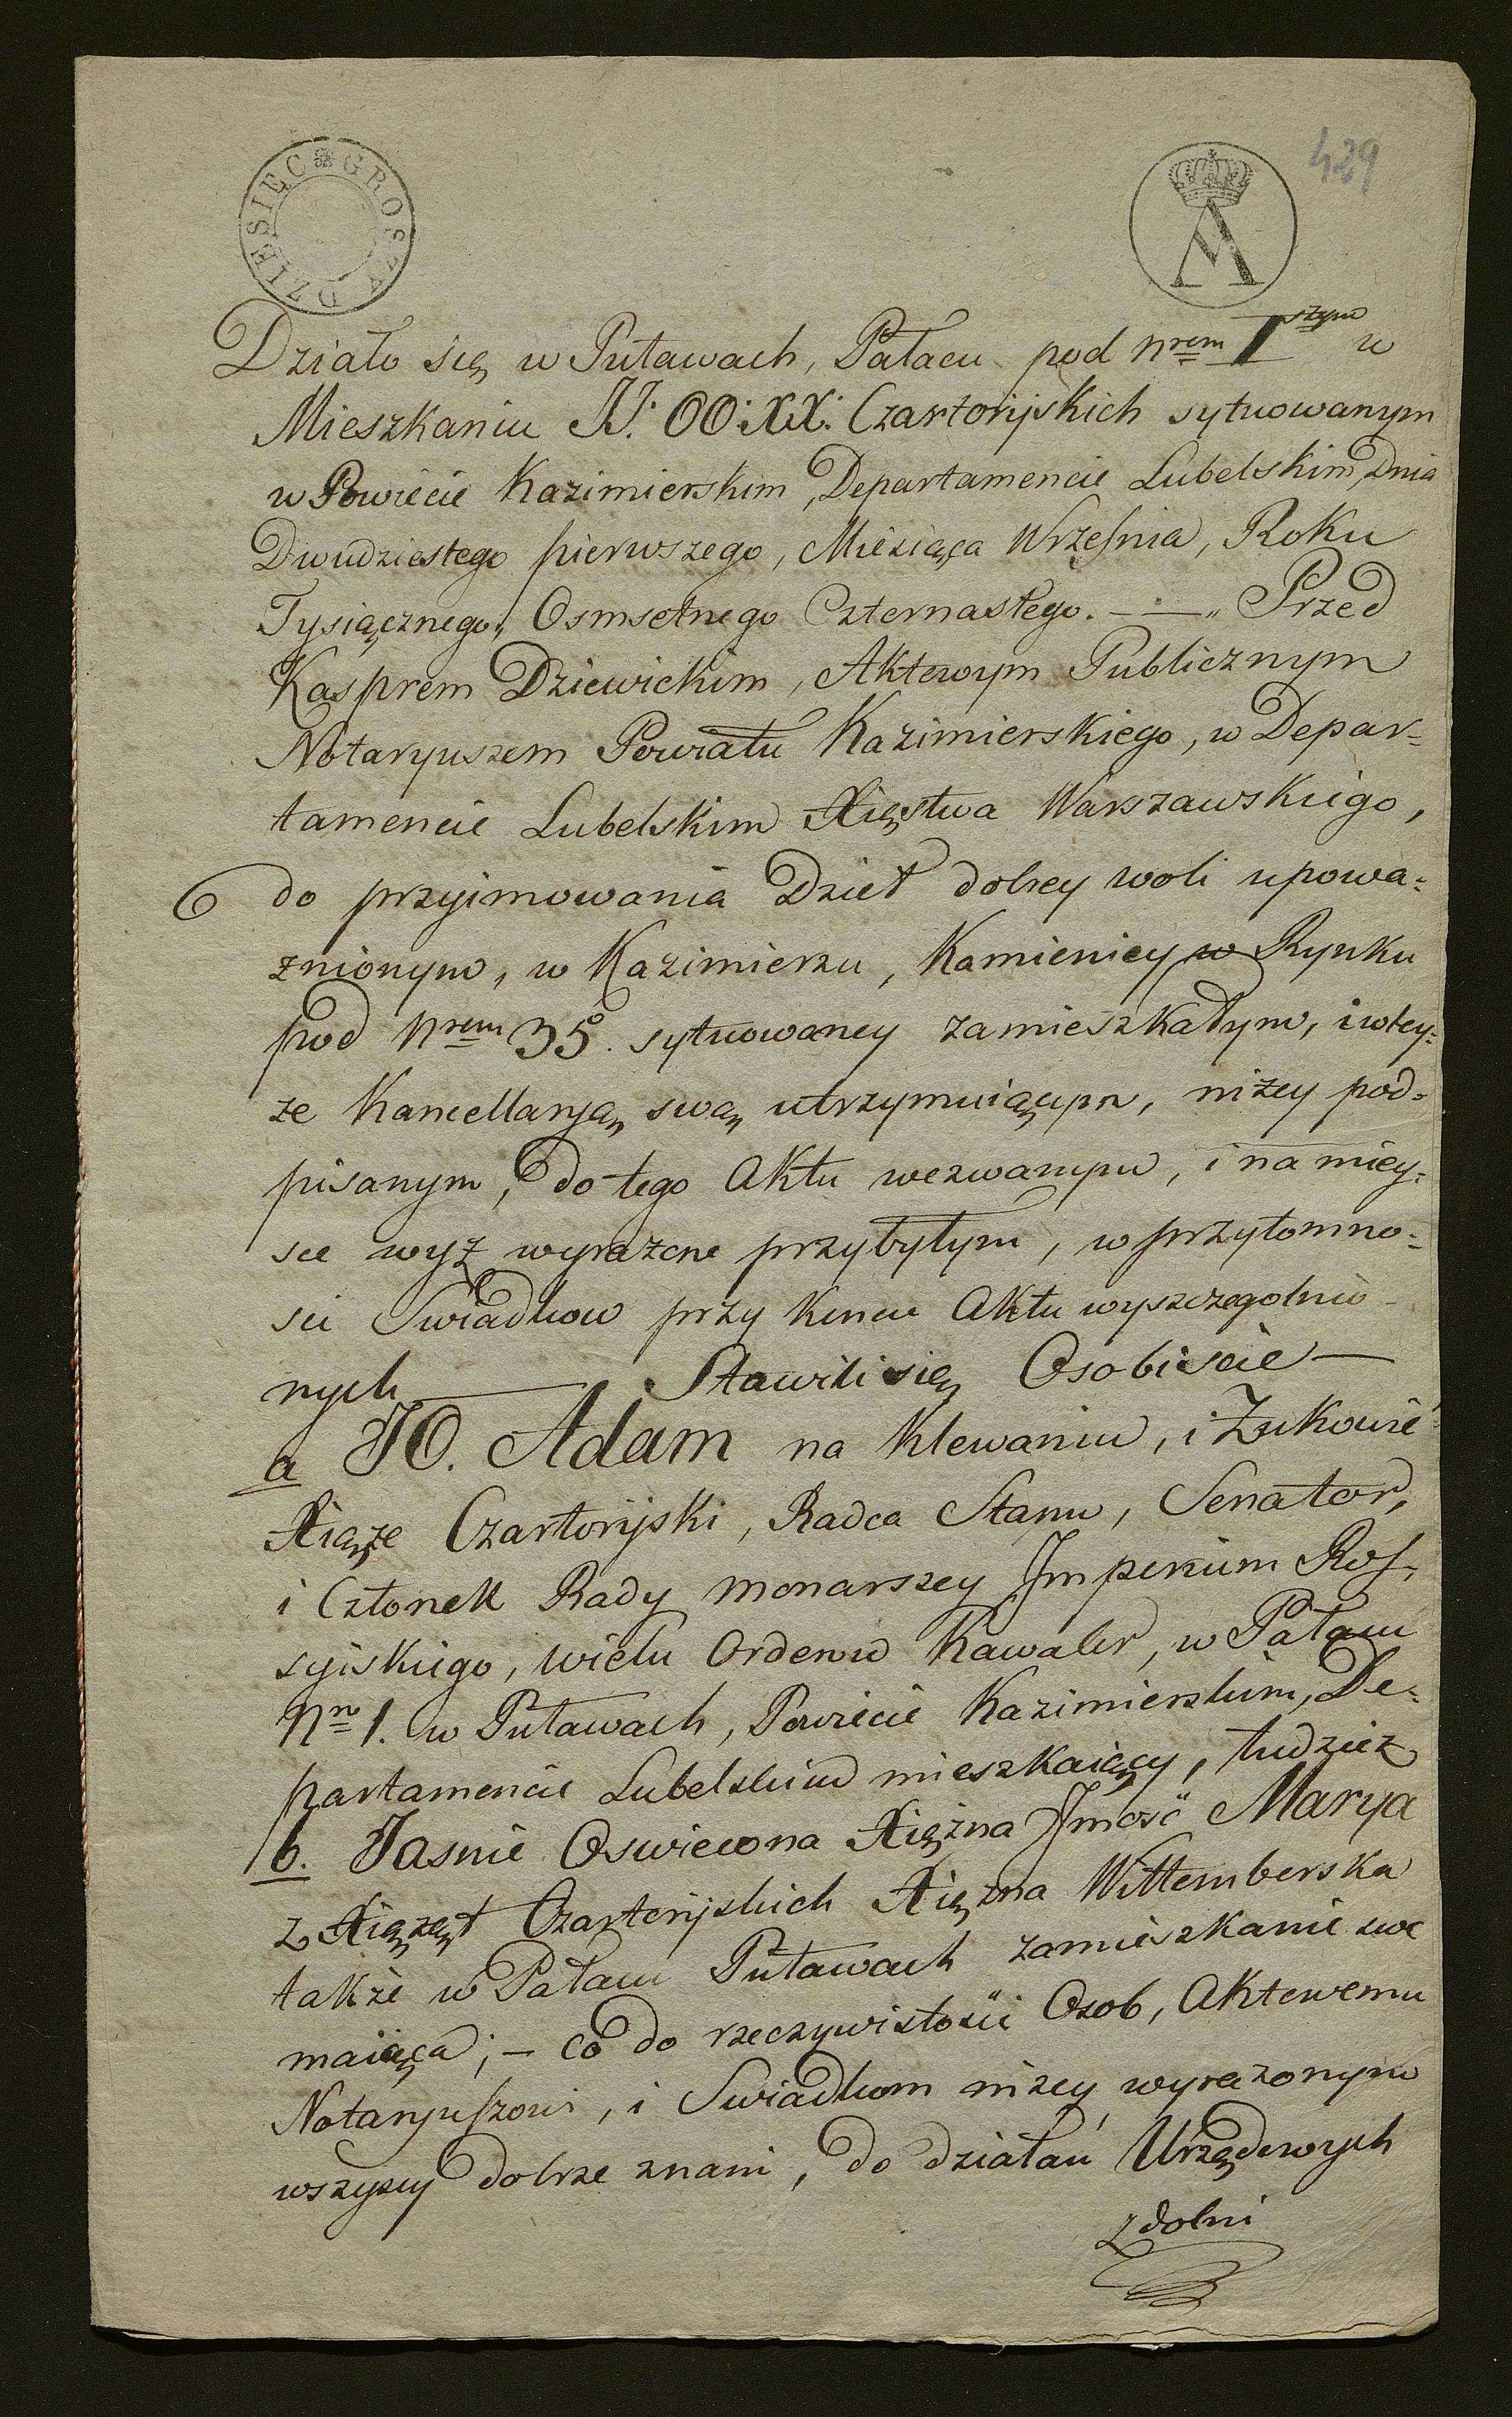 429
DZIESIĘC GROSZY
A
Działo się w Puławach, Pałacu pod Nrem 1szym w
Mieszkaniu JJ. OO. XX. Czartoryskich sytuowanym
w Powiecie Kazimierskim, Departamencie Lubelskim, Dnia
Dwudziestego pierwszego, Miesiąca Wrzesnia, Roku
Tysiącznego, Osmsetnego Czternastego. — „ Przed
Kasprem Dziewickim, Aktowym Publicznym
Notaryuszem Powiatu Kazimierskiego, w Depar=
tamencie Lubelskim Xięstwa Warszawskiego,
do przyimowania Dzieł dobrey woli upowa=
znionym, w Kazimierzu, Kamienicy w Rynku
pod Nrem 35. sytuowaney zamieszkałym, i wtey=
ze Kancellaryą swą utrzymuiącym, niżey pod=
pisanym, do tego Aktu wezwanym, i na miey=
sce wyż wyrażone przybyłym, w przytomno=
sci Swiadkow przy koncu Aktu wyszczegolnio-
nych — Stawili się Osobiscie —
a JO. Adam na Klewaniu, i Zukowie
Xiąże Czartoryski, Radca Stanu, Senator,
i Członek Rady monarszey Imperium Ros,
syiskiego, wielu Orderow Kawaler, w Pałacu
Nro 1. w Puławach, Powiecie Kazimierskim, De=
partamencie Lubelskim mieszkaiący, tudzież
b. Jasnie Oswiecona Xiężna Jmość Marya
z Xiążąt Czartoryskich Xiężna Wittemberska
także w Pałacu Puławach zamieszkanie swe
maiąca; — co do rzeczywistości Osob, Aktowemu
Notaryuszowi, i Swiadkom niżey wyrażonym
wszyscy dobrze znani, do działań Urzędowych
zdolni